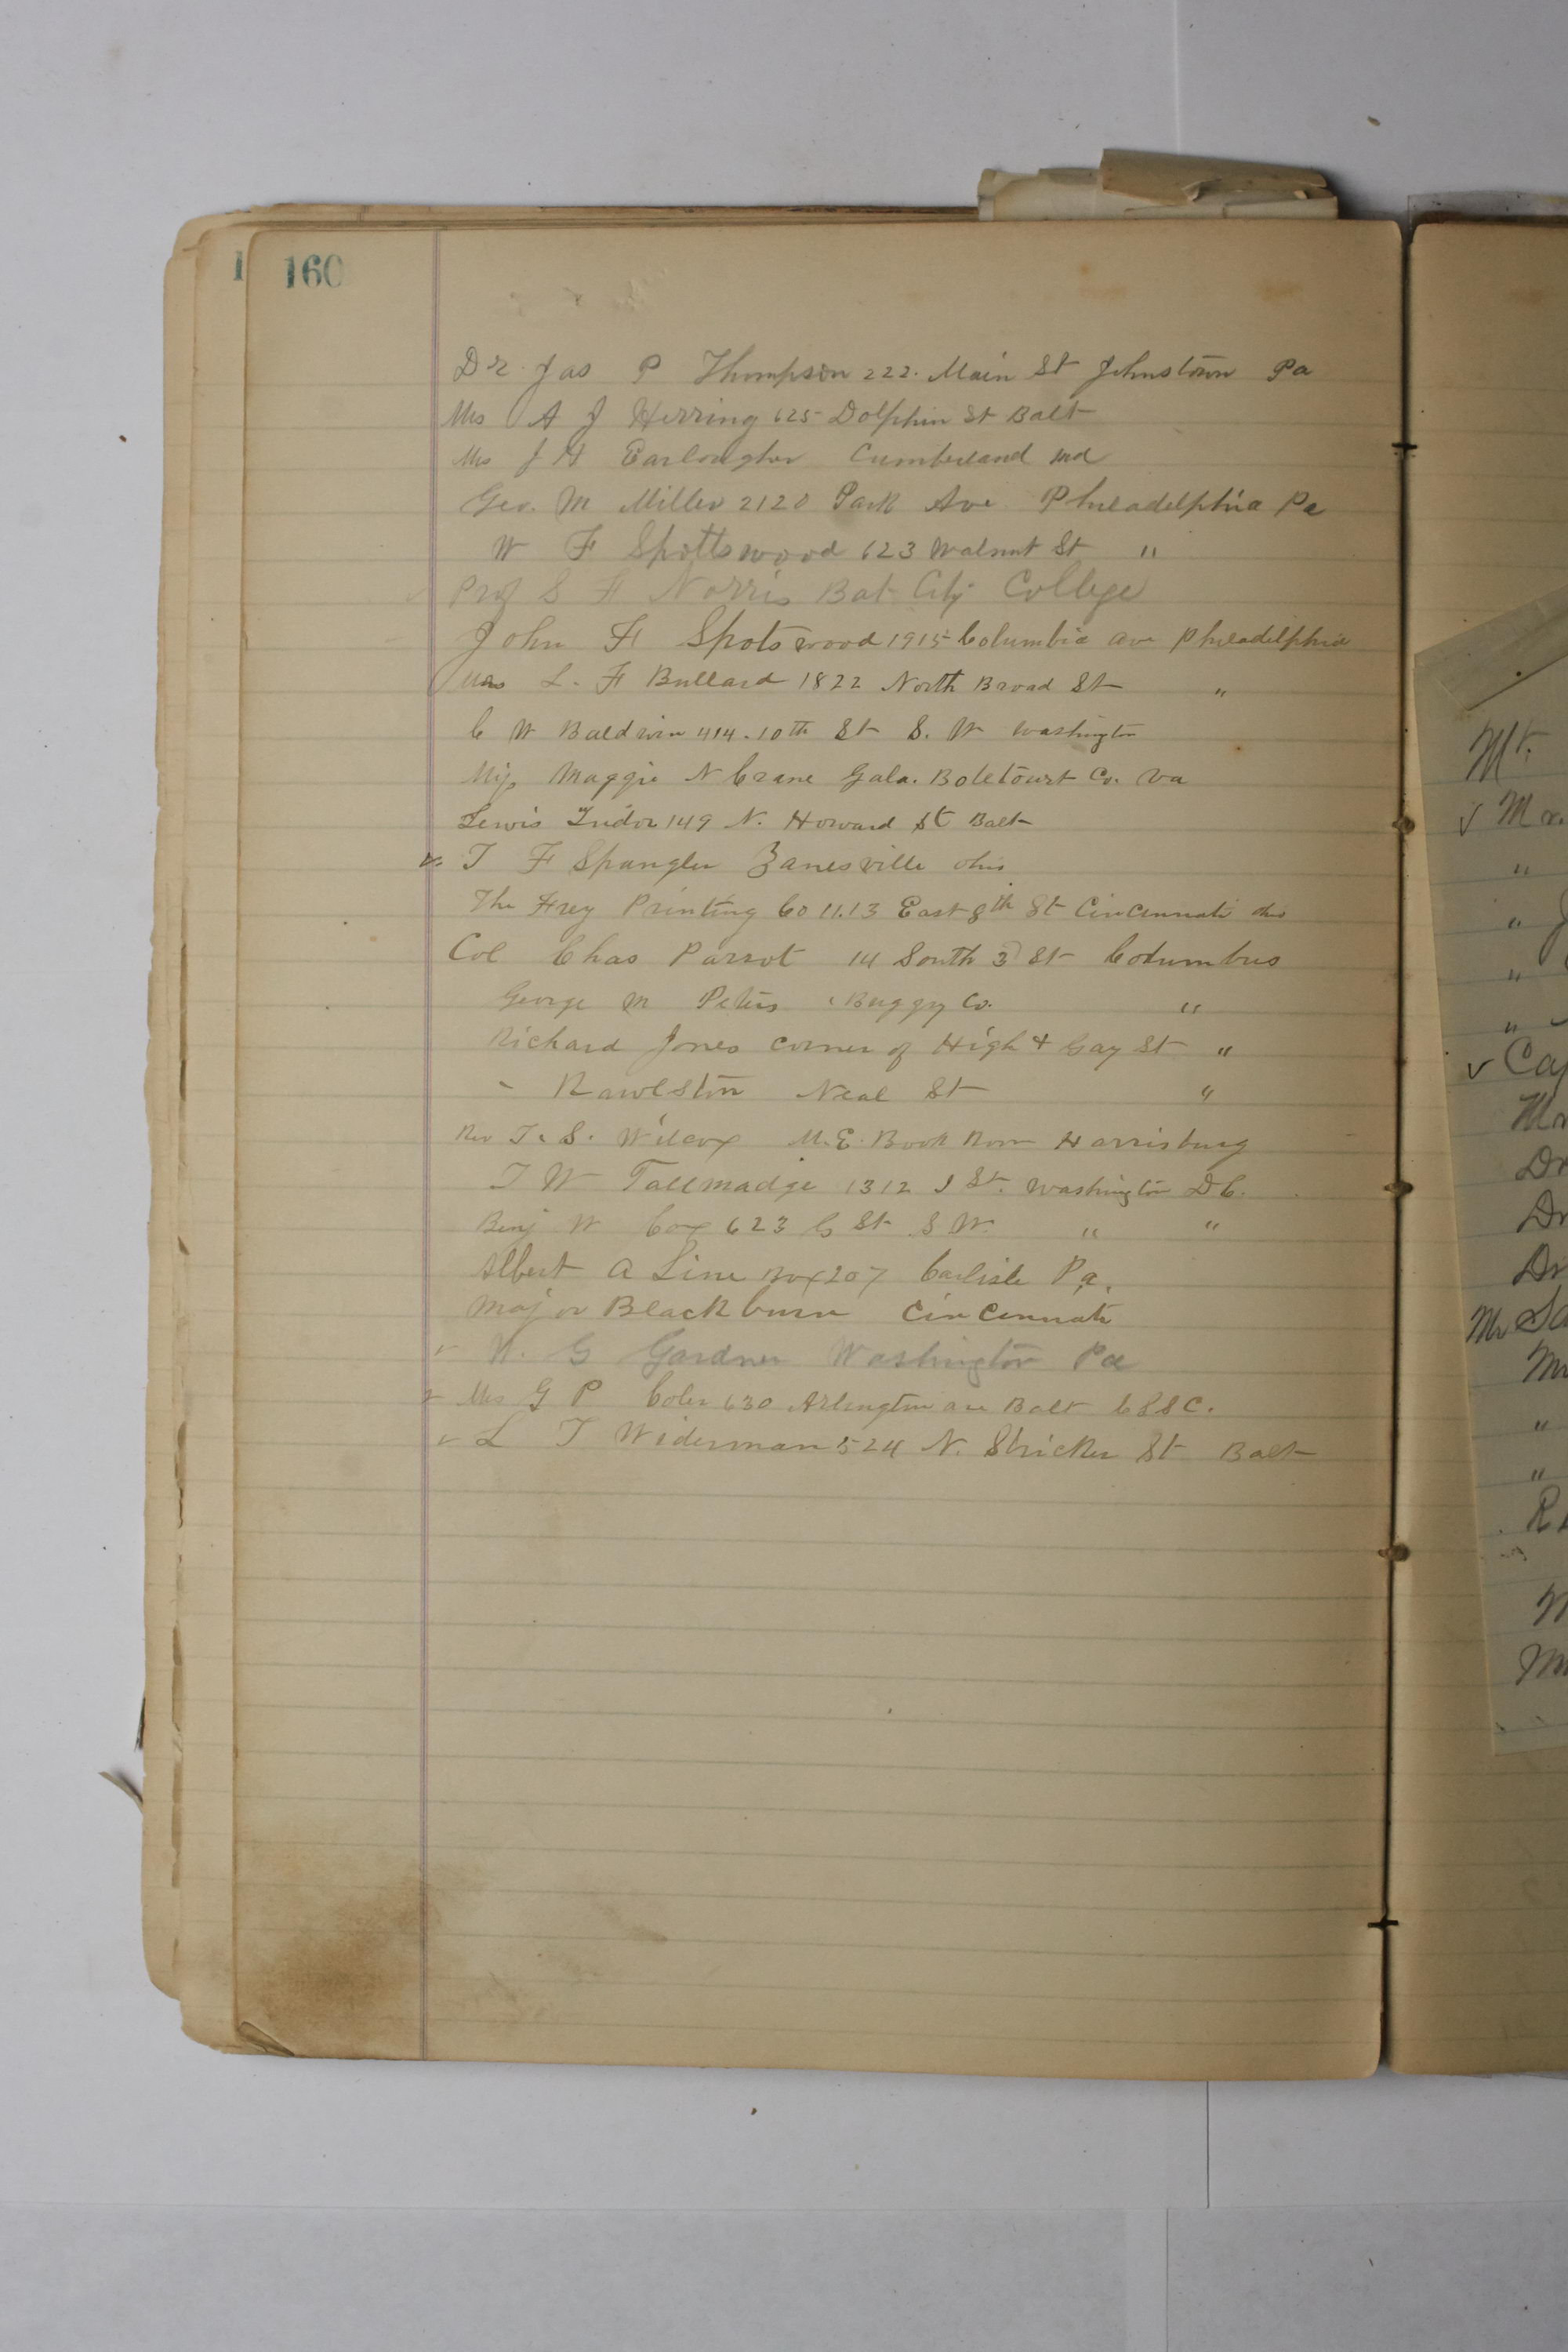 160
Dr. Jas P Thompson 222. Main St Johnstown Pa
Mrs A J Herring 625 Dolphin St Balt
Mrs J H Earlougher Cumberland Md
Geo. M Miller 2120 Park Ave Philadelphia Pa
W F Spottswood 623 Walnut St "
Prof S F Norris Bat City College
John F Spotswood 1915 Columbia ave Philadelphia
Mrs L. F Bullard 1822 North Broad St "
C W Baldwin 414 - 10th St S. W Washington
Miss Maggie N Crane Gala. Botetourt Co. Va
Lewis Tudor 149 N. Howard St Balt
T F Spangler Zanesville Ohio
The Frey Printing Co 11.13 East 8th St Cincinnati Ohio
Col Chas Parrot 14 South 3 St Columbus
George M Peters Buggy Co. "
Richard Jones corner of High & Gay St "
Rawlston Neal St "
Rev T. S. Wilcox M.E. Book Room Harrisburg
T W Tallmadge 1312 I St. Washington D C.
Benj W Cox 623 G St S W. " "
Albert A Line Box 207 Carlisle Pa.
Major Blackburn Cincinnati
W. G Gardner Washington Pa
✓ Mrs G P Coler 630 Arlington ave Balt
✓ L T Widerman 524 N. Stricker St Balt
Mr.
✓
"
"
"
"
✓
Dr
Dr
Dr
"
"